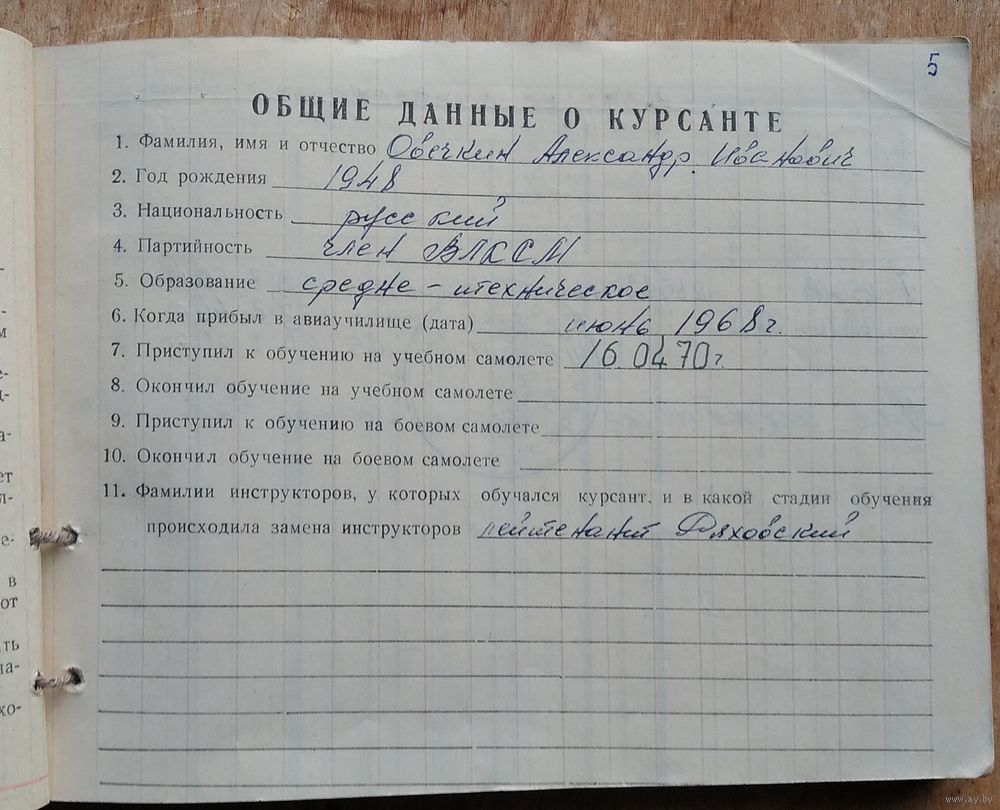 5
ОБЩИЕ ДАННЫЕ О КУРСАНТЕ
1. Фамилия, имя и отчество Овечкин Александр Иванович
2. Год рождения 1948
3. Национальность русский
4. Партийность член ВЛКСМ
5. Образование средне-техническое
6. Когда прибыл в авиаучилище (дата) июнь 1968 г.
7. Приступил к обучению на учебном самолете 16.04.70 г.
8. Окончил обучение на учебном самолете
9. Приступил к обучению на боевом самолете
10. Окончил обучение на боевом самолете
11. Фамилии инструкторов, у которых обучался курсант, и в какой стадии обучения
происходила замена инструкторов лейтенант
www.ay.by